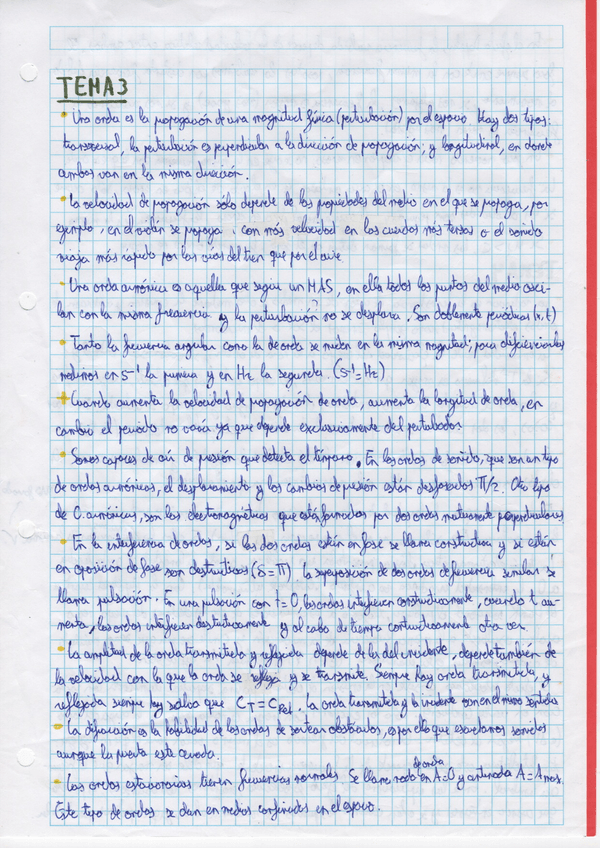 TEMA3
Una onda es la propagación de una magnitud física (perturbación) por el espacio. Hay dos tipos:
transversal, la perturbación es perpendicular a la dirección de propagación; y longitudinal, en donde
ambos van en la misma dirección.
La velocidad de propagación sólo depende de las propiedades del medio en el que se propaga, por
ejemplo, en el violín se propaga con más velocidad en las cuerdas más tensas o el sonido
viaja más rápido por las vías del tren que por el aire
Una onda armónica es aquella que sigue un MAS, en ella todos los puntos del medio osci-
lan con la misma frecuencia y la perturbación no se desplaza. Son doblemente periódicas (x,t)
Tanto la frecuencia angular como la de onda se miden en la misma magnitud; para diferenciarlas
medimos en s⁻¹ la primera y en Hz la segunda. (s⁻¹=Hz)
Cuando aumenta la velocidad de propagación de onda, aumenta la longitud de onda, en
cambio el periodo no varía ya que depende exclusivamente del perturbador
Somos capaces de oír de presión que detecta el tímpano. En las ondas de sonido, que son un tipo
de ondas armónicas, el desplazamiento y los cambios de presión están desfasados π/2. Otro tipo
de O. armónicas, son las electromagnéticas que están formadas por dos ondas mutuamente perpendiculares
En la interferencia de ondas, si las dos ondas están en fase se llama constructiva y si están
en oposición de fase son destructivas (δ=π). La superposición de dos ondas de frecuencia similar se
llama pulsación. En una pulsación con t=0, las ondas interfieren constructivamente, cuando t au-
menta, las ondas interfieren destructivamente y al cabo de tiempo constructivamente otra vez
La amplitud de la onda transmitida y reflejada depende de la del incidente, depende también de
la velocidad con la que la onda se refleja y se transmite. Siempre hay onda transmitida, y
reflejada siempre hay salvo que C_T=C_Ref. La onda transmitida y la incidente van en el mismo sentido
La difracción es la habilidad de las ondas de sortear obstáculos, es por ello que escuchamos sonidos
aunque la puerta este cerrada.
Las ondas estacionarias tienen frecuencias normales Se llama nodo de onda en A=0 y antinodo A=Amax.
Este tipo de ondas se dan en medios confinados en el espacio.